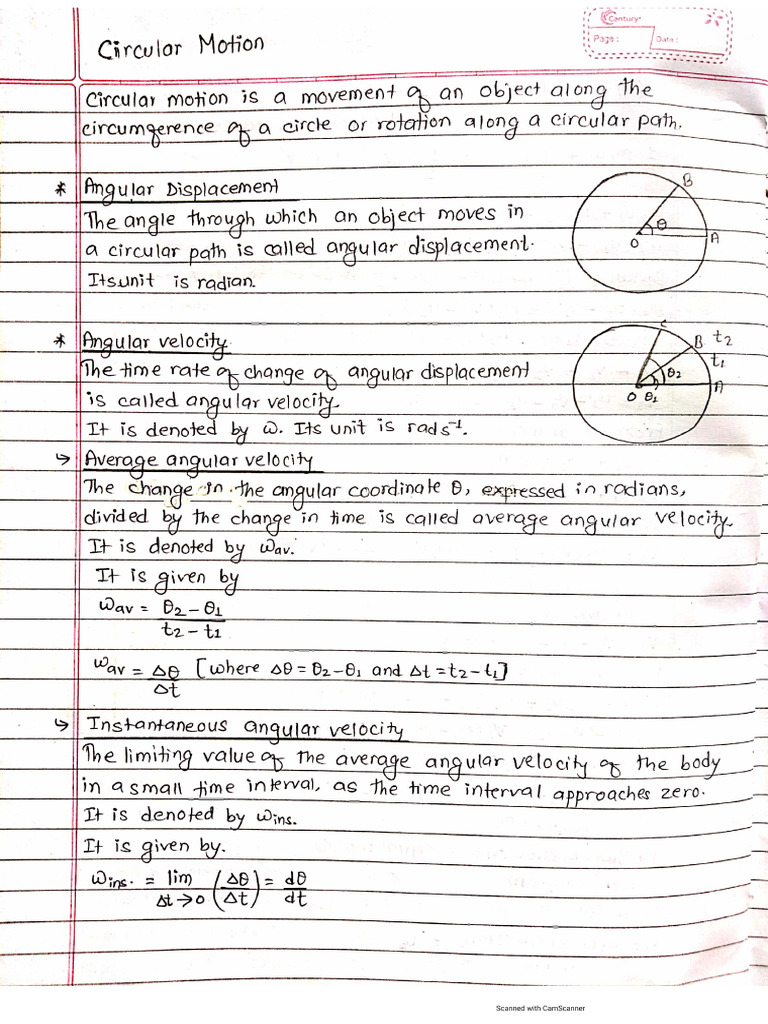 Century
Page: Date:
Circular Motion
Circular motion is a movement of an object along the
circumference of a circle or rotation along a circular path.
* Angular Displacement
The angle through which an object moves in
a circular path is called angular displacement.
Its unit is radian.
B
θ
O A
* Angular velocity
The time rate of change of angular displacement
is called angular velocity.
It is denoted by ω. Its unit is rads⁻¹.
C
B t₂
t₁
θ₂
A
O θ₁
↪ Average angular velocity
The change in the angular coordinate θ, expressed in radians,
divided by the change in time is called average angular velocity.
It is denoted by ωav.
It is given by
ωav = θ₂ - θ₁
t₂ - t₁
ωav = Δθ [where Δθ = θ₂-θ₁ and Δt = t₂-t₁]
Δt
↪ Instantaneous angular velocity
The limiting value of the average angular velocity of the body
in a small time interval, as the time interval approaches zero.
It is denoted by ωins.
It is given by.
ωins. = lim (Δθ) = dθ
Δt→0 (Δt) dt
Scanned with CamScanner